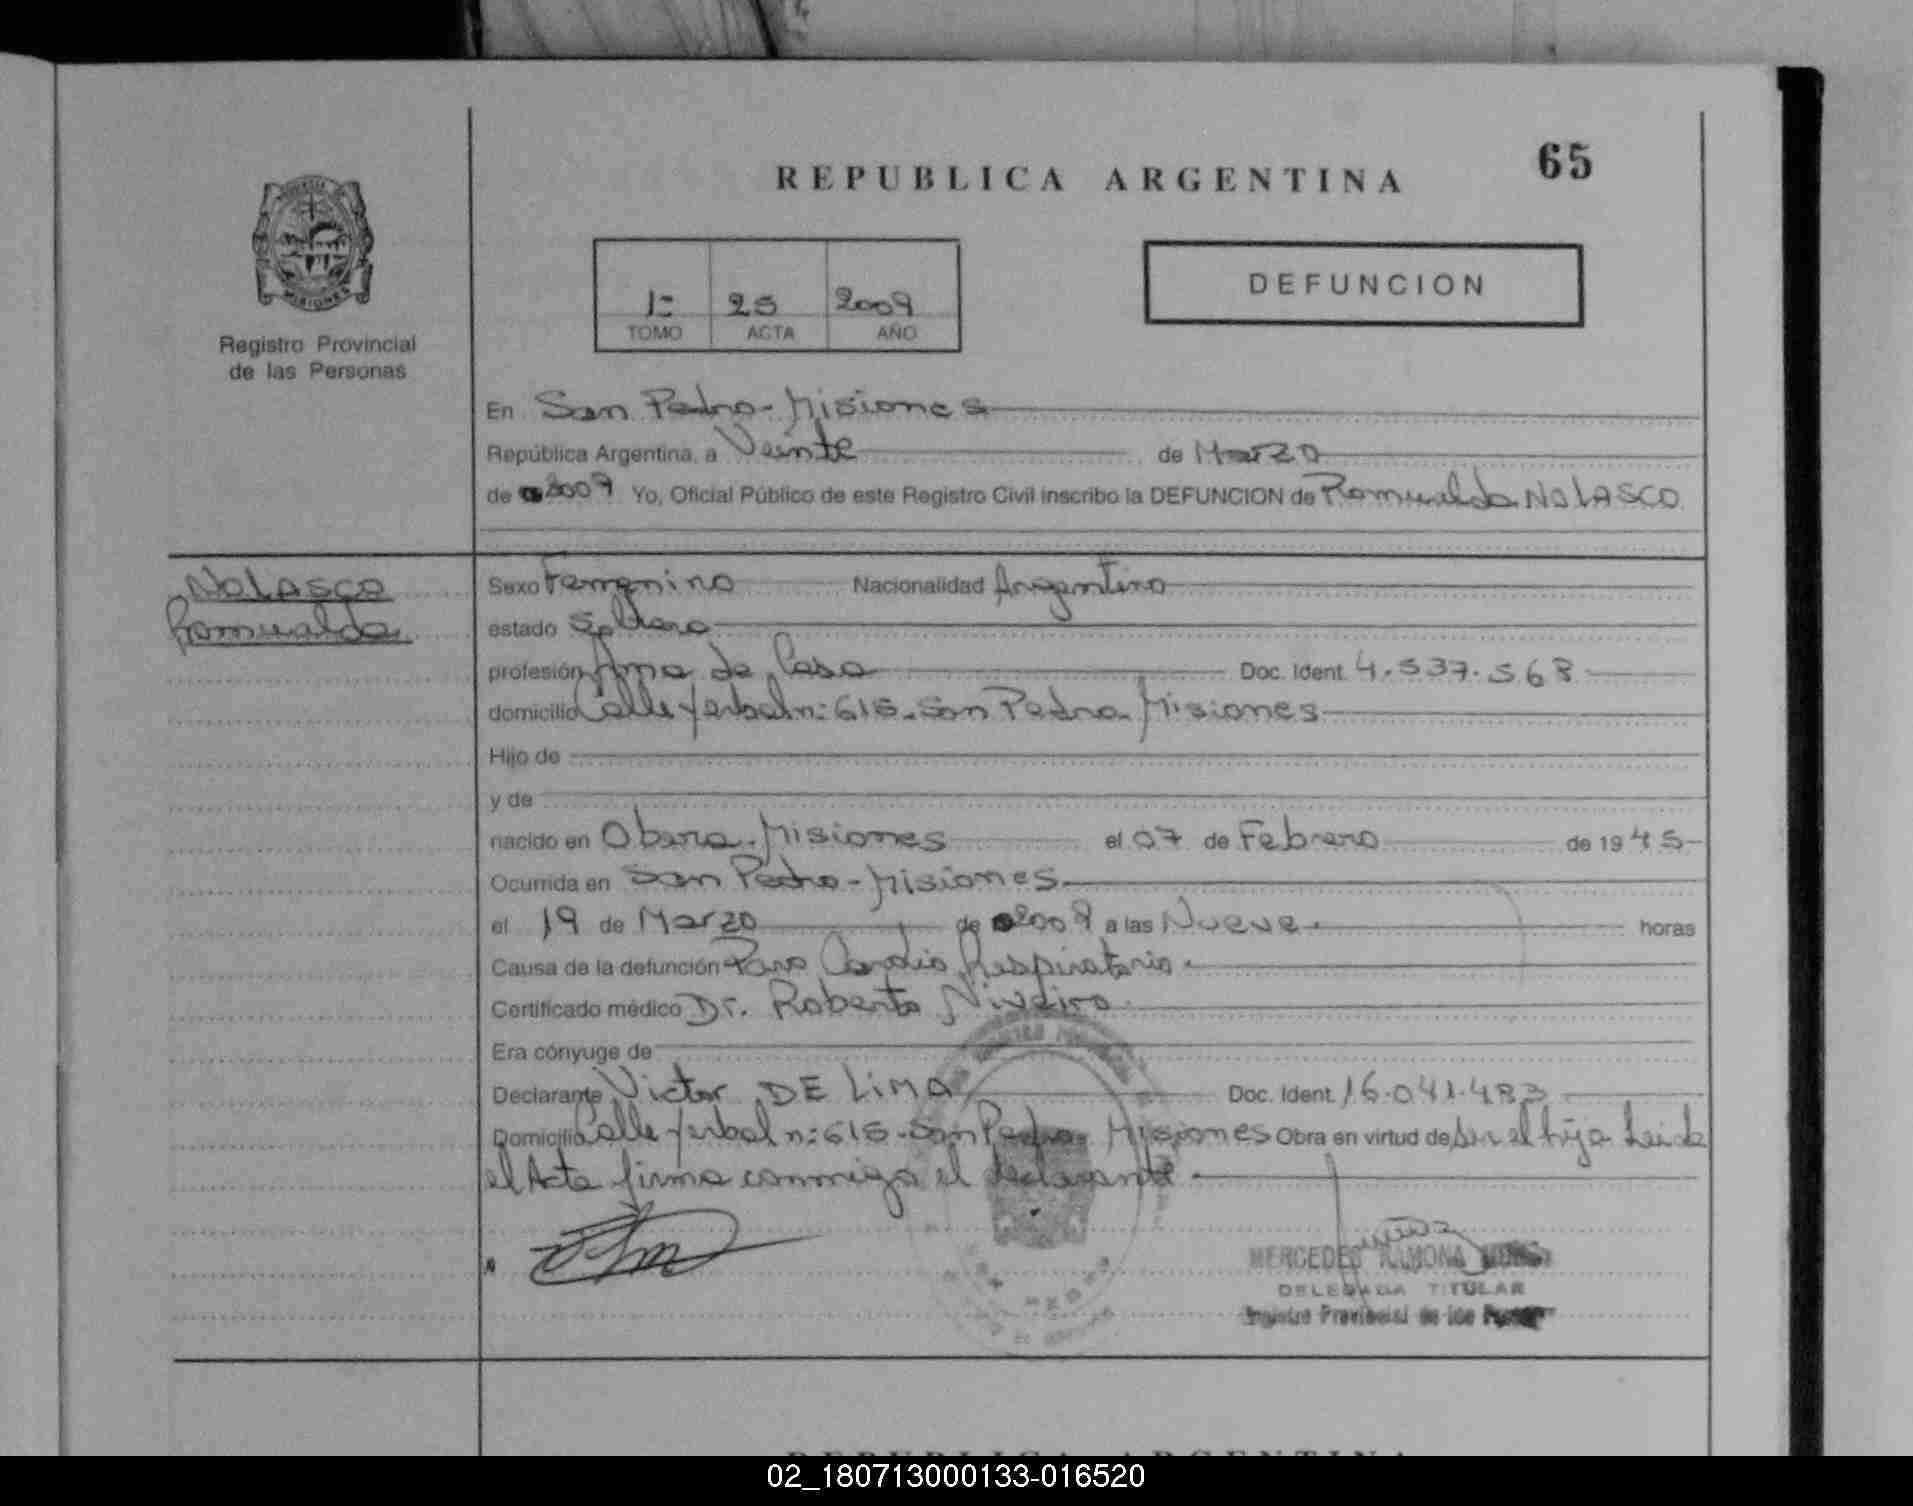 65
REPUBLICA ARGENTINA
MISIONES
Registro Provincial
de las Personas
1= 25 2009
TOMO ACTA AÑO
DEFUNCION
En San Pedro - Misiones
República Argentina, a Veinte de Marzo
de 2009 Yo, Oficial Público de este Registro Civil inscribo la DEFUNCION de Romualda NOLASCO
NOLASCO
Romualda
Sexo Femenino Nacionalidad Argentina
estado Soltera
profesión Ama de Casa Doc. Ident. 4.537.568
domicilio Calle Yerbal n: 615 - San Pedro - Misiones
Hijo de
y de
nacido en Obera - Misiones el 07 de Febrero de 1945
Ocurrida en San Pedro - Misiones
el 19 de Marzo de 2009 a las Nueve horas
Causa de la defunción Paro Cardio Respiratorio
Certificado médico Dr. Roberto Niveiro
Era cónyuge de
Declarante Victor DE LIMA Doc. Ident. 16.041.483
Domicilio Calle Yerbal n: 615 - San Pedro - Misiones Obra en virtud de ser el hijo Leida
el Acta firma conmigo el declarante
MERCEDES RAMONA
DELEGADA TITULAR
Registro Provincial de las
REPUBLICA ARGENTINA
02_180713000133-016520